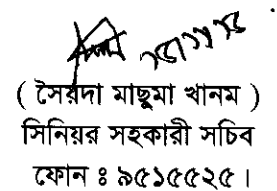 ( সৈয়দা মাছুমা খানম )
সিনিয়র সহকারী সচিব
ফোন ঃ ৯৫১৫৫২৫ ।